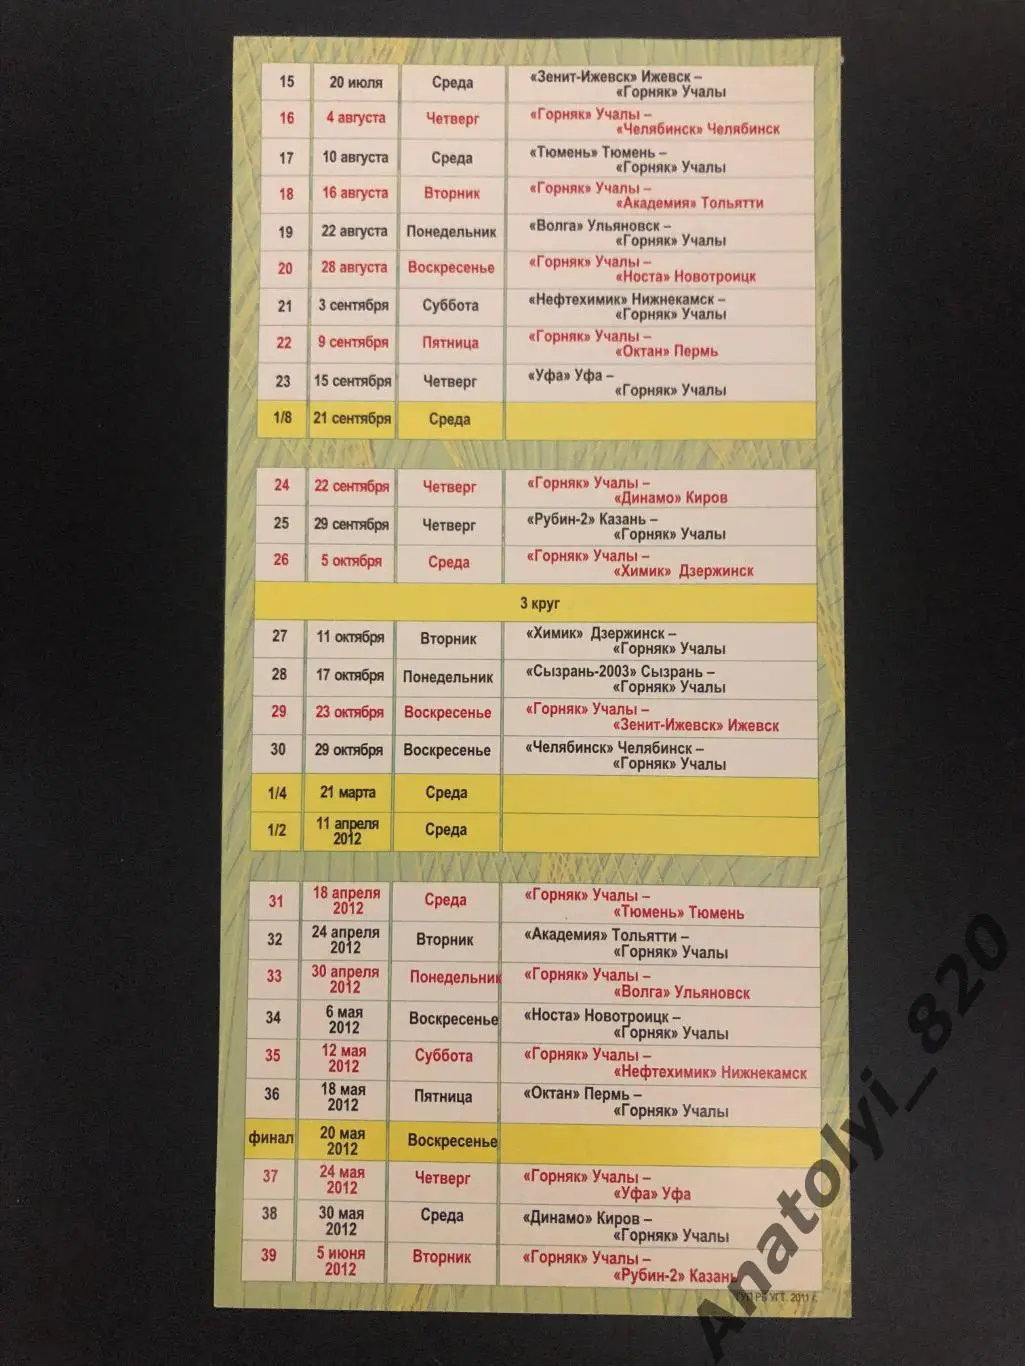 15 20 июля Среда «Зенит-Ижевск» Ижевск –
«Горняк» Учалы
16 4 августа Четверг «Горняк» Учалы –
«Челябинск» Челябинск
17 10 августа Среда «Тюмень» Тюмень –
«Горняк» Учалы
18 16 августа Вторник «Горняк» Учалы –
«Академия» Тольятти
19 22 августа Понедельник «Волга» Ульяновск –
«Горняк» Учалы
20 28 августа Воскресенье «Горняк» Учалы –
«Носта» Новотроицк
21 3 сентября Суббота «Нефтехимик» Нижнекамск –
«Горняк» Учалы
22 9 сентября Пятница «Горняк» Учалы –
«Октан» Пермь
23 15 сентября Четверг «Уфа» Уфа –
«Горняк» Учалы
1/8 21 сентября Среда
24 22 сентября Четверг «Горняк» Учалы –
«Динамо» Киров
25 29 сентября Четверг «Рубин-2» Казань –
«Горняк» Учалы
26 5 октября Среда «Горняк» Учалы –
«Химик» Дзержинск
3 круг
27 11 октября Вторник «Химик» Дзержинск –
«Горняк» Учалы
28 17 октября Понедельник «Сызрань-2003» Сызрань –
«Горняк» Учалы
29 23 октября Воскресенье «Горняк» Учалы –
«Зенит-Ижевск» Ижевск
30 29 октября Воскресенье «Челябинск» Челябинск –
«Горняк» Учалы
1/4 21 марта Среда
1/2 11 апреля Среда
2012
31 18 апреля Среда «Горняк» Учалы –
2012 «Тюмень» Тюмень
32 24 апреля Вторник «Академия» Тольятти –
2012 «Горняк» Учалы
33 30 апреля Понедельник «Горняк» Учалы –
2012 «Волга» Ульяновск
34 6 мая Воскресенье «Носта» Новотроицк –
2012 «Горняк» Учалы
35 12 мая Суббота «Горняк» Учалы –
2012 «Нефтехимик» Нижнекамск
36 18 мая Пятница «Октан» Пермь –
2012 «Горняк» Учалы
финал 20 мая Воскресенье
2012
37 24 мая Четверг «Горняк» Учалы –
2012 «Уфа» Уфа
38 30 мая Среда «Динамо» Киров –
2012 «Горняк» Учалы
39 5 июня Вторник «Горняк» Учалы –
2012 «Рубин-2» Казань
ГУП РБ УГТ. 2011 г.
Anatolyi_820